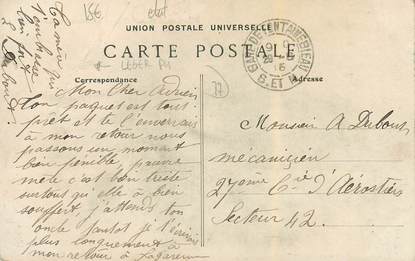 15€ état
UNION POSTALE UNIVERSELLE
CARTE POSTALE
GARE DE FONTAINEBLEAU
S. ET M.
Correspondance
Adresse
* LEGER PLI
77
Ton amie qui
t'embrasse
bien fort
Mon Cher Adrien
Ton paquet est tout
prêt et te l'enverrais
à mon retour nous
passons un moment
bien pénible, pauvre
c'est bien triste
surtout qu'elle a bien
souffert, j'attends ton
oncle tantôt je t'écrirai
plus longuement à
mon retour à
Monsieur A Dubout
mécanicien
27ème Cie d'Aérostiers
Secteur 42.